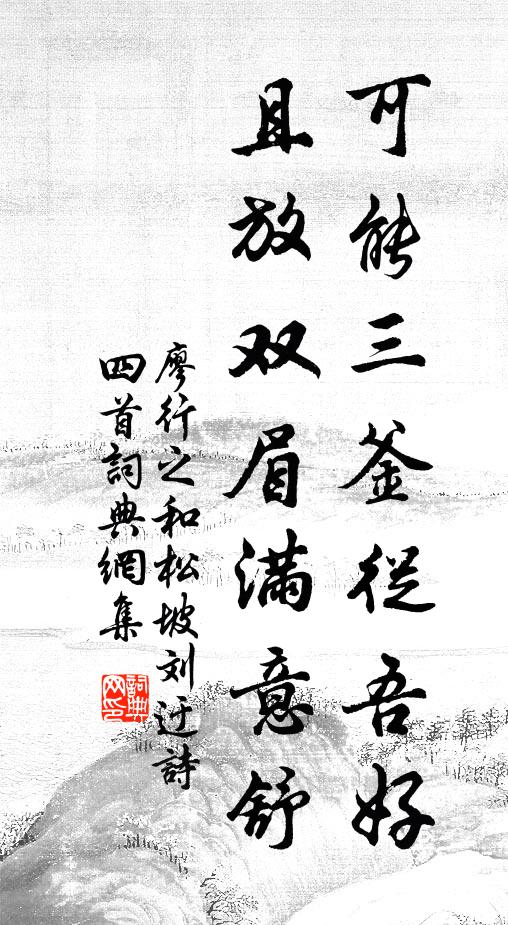 可能三釜從吾好
且放双眉滿意舒
廖行之和松坡刘迂詩
四首詞典網集
詞典
网印